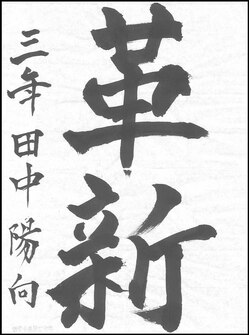 革新
三年 田中陽向